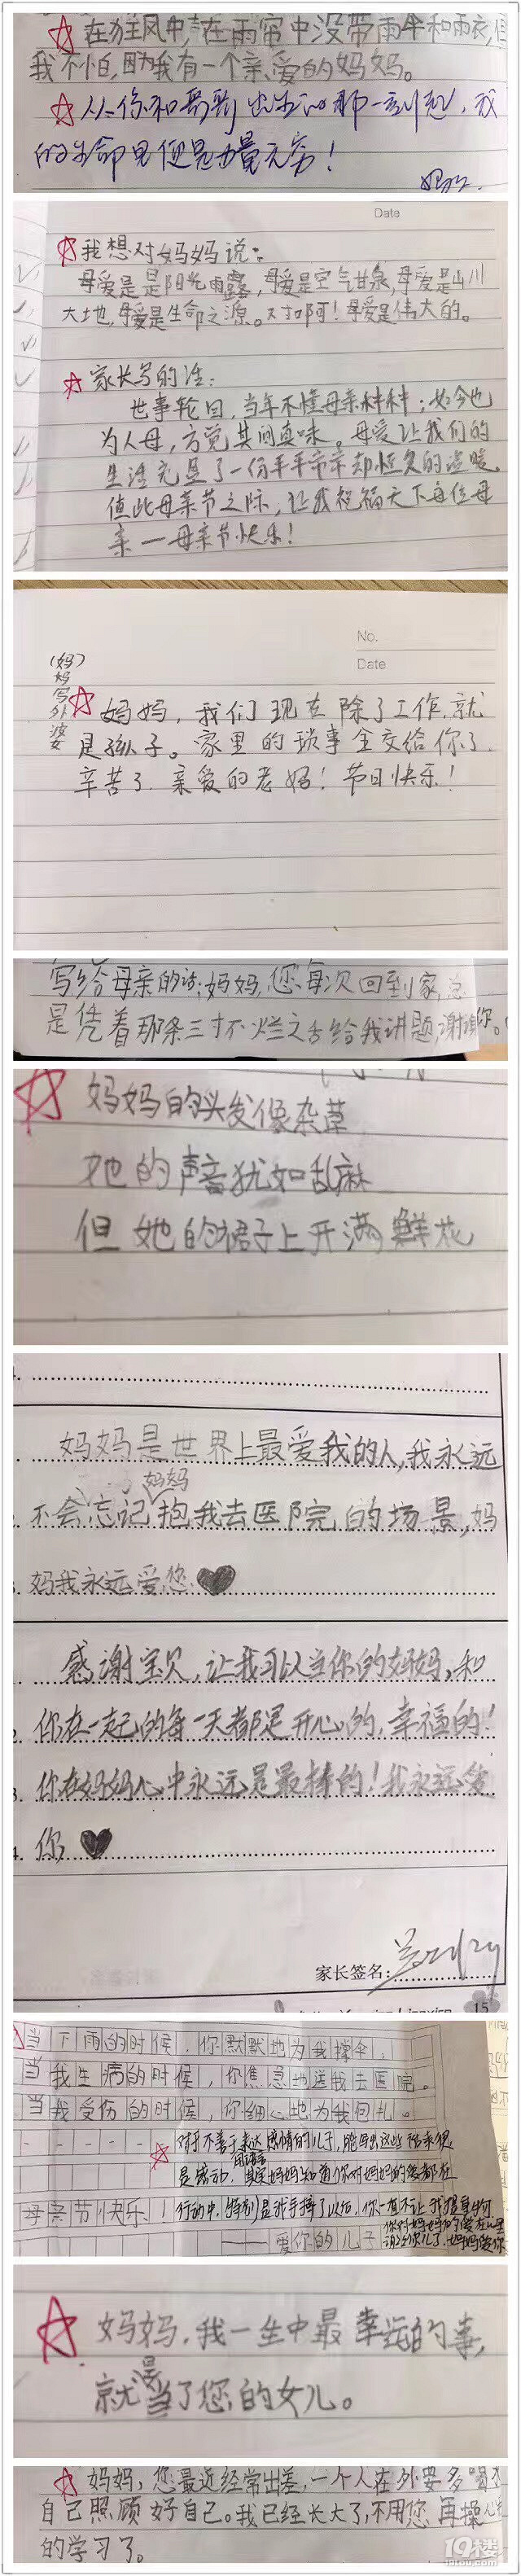 在狂风中,在雨帘中没带雨伞和雨衣,但
我不怕,因为我有一个亲爱的妈妈。
从你和哥哥出生的那一刻起,我
的生命里便是力量无穷!
妈妈.
Date
我想对妈妈说:
母爱是是阳光雨露,母爱是空气甘泉,母爱是山川
大地,母爱是生命之源。对啊!母爱是伟大的。
家长写的话:
世事轮回,当年不懂母亲种种;如今也
为人母,方觉其间真味。母爱让我们的
生活充是了一份平平常常却恒久的温暖
值此母亲节之际,让我祝福天下每位母
亲一母亲节快乐!
No.
Date
(妈)妈写外婆
妈妈,我们现在除了工作,就
是孙子。家里的琐事全交给你了,
辛苦了.亲爱的老妈!节日快乐!
写给母亲的话:妈妈,您每次回到家,总
是凭着那条三寸不烂之舌给我讲题,谢谢你。
妈妈的头发像杂草
她的声音犹如乱麻
但她的裙子上开满鲜花
妈妈是世界上最爱我的人,我永远
不会忘记妈妈抱我去医院的场景,妈
妈我永远爱您
感谢宝贝,让我可以当你的妈妈,和
你在一起的每一天都是开心的,幸福的!
你在妈妈心中永远是最棒的!我永远爱
你
家长签名:
15
当下雨的时候,你默默地为我撑伞。
当我生病的时候,你焦急地送我去医院。
当我受伤的时候,你细心地为我包扎。
对于不善于用语言表达感情的儿子,能写出这些话来很
是感动,其实妈妈知道你对妈妈的爱都在
母亲节快乐!
行动中,特别是我手摔了以后,你一直不让我提重物
你对妈妈的爱在心里
——爱你的儿子
谢谢你儿子,妈妈爱你
妈妈,我一生中最幸运的事,
就是当了您的女儿。
妈妈,您最近经常出差,一个人在外要多喝水
自己照顾好自己。我已经长大了,不用您再操心
的学习了。
19楼
19lou.com